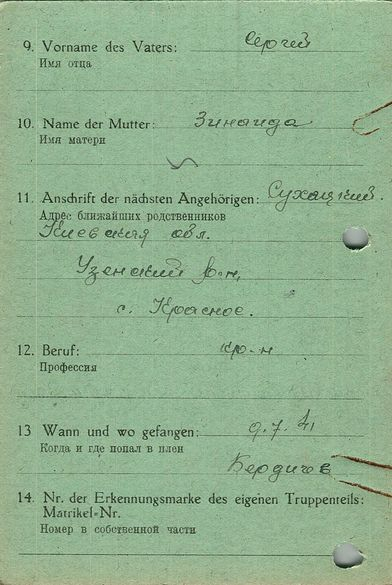 9. Vorname des Vaters: Сергей
Имя отца
10. Name der Mutter: Зинаида
Имя матери
11. Anschrift der nächsten Angehörigen: Сухацкий.
Адрес ближайших родственников
Киевская обл.
Узенский р-н,
с. Красное.
12. Beruf: кр-н
Профессия
13 Wann und wo gefangen: 9.7.41
Когда и где попал в плен
Бердичев
14. Nr. der Erkennungsmarke des eigenen Truppenteils:
Matrikel-Nr.
Номер в собственной части